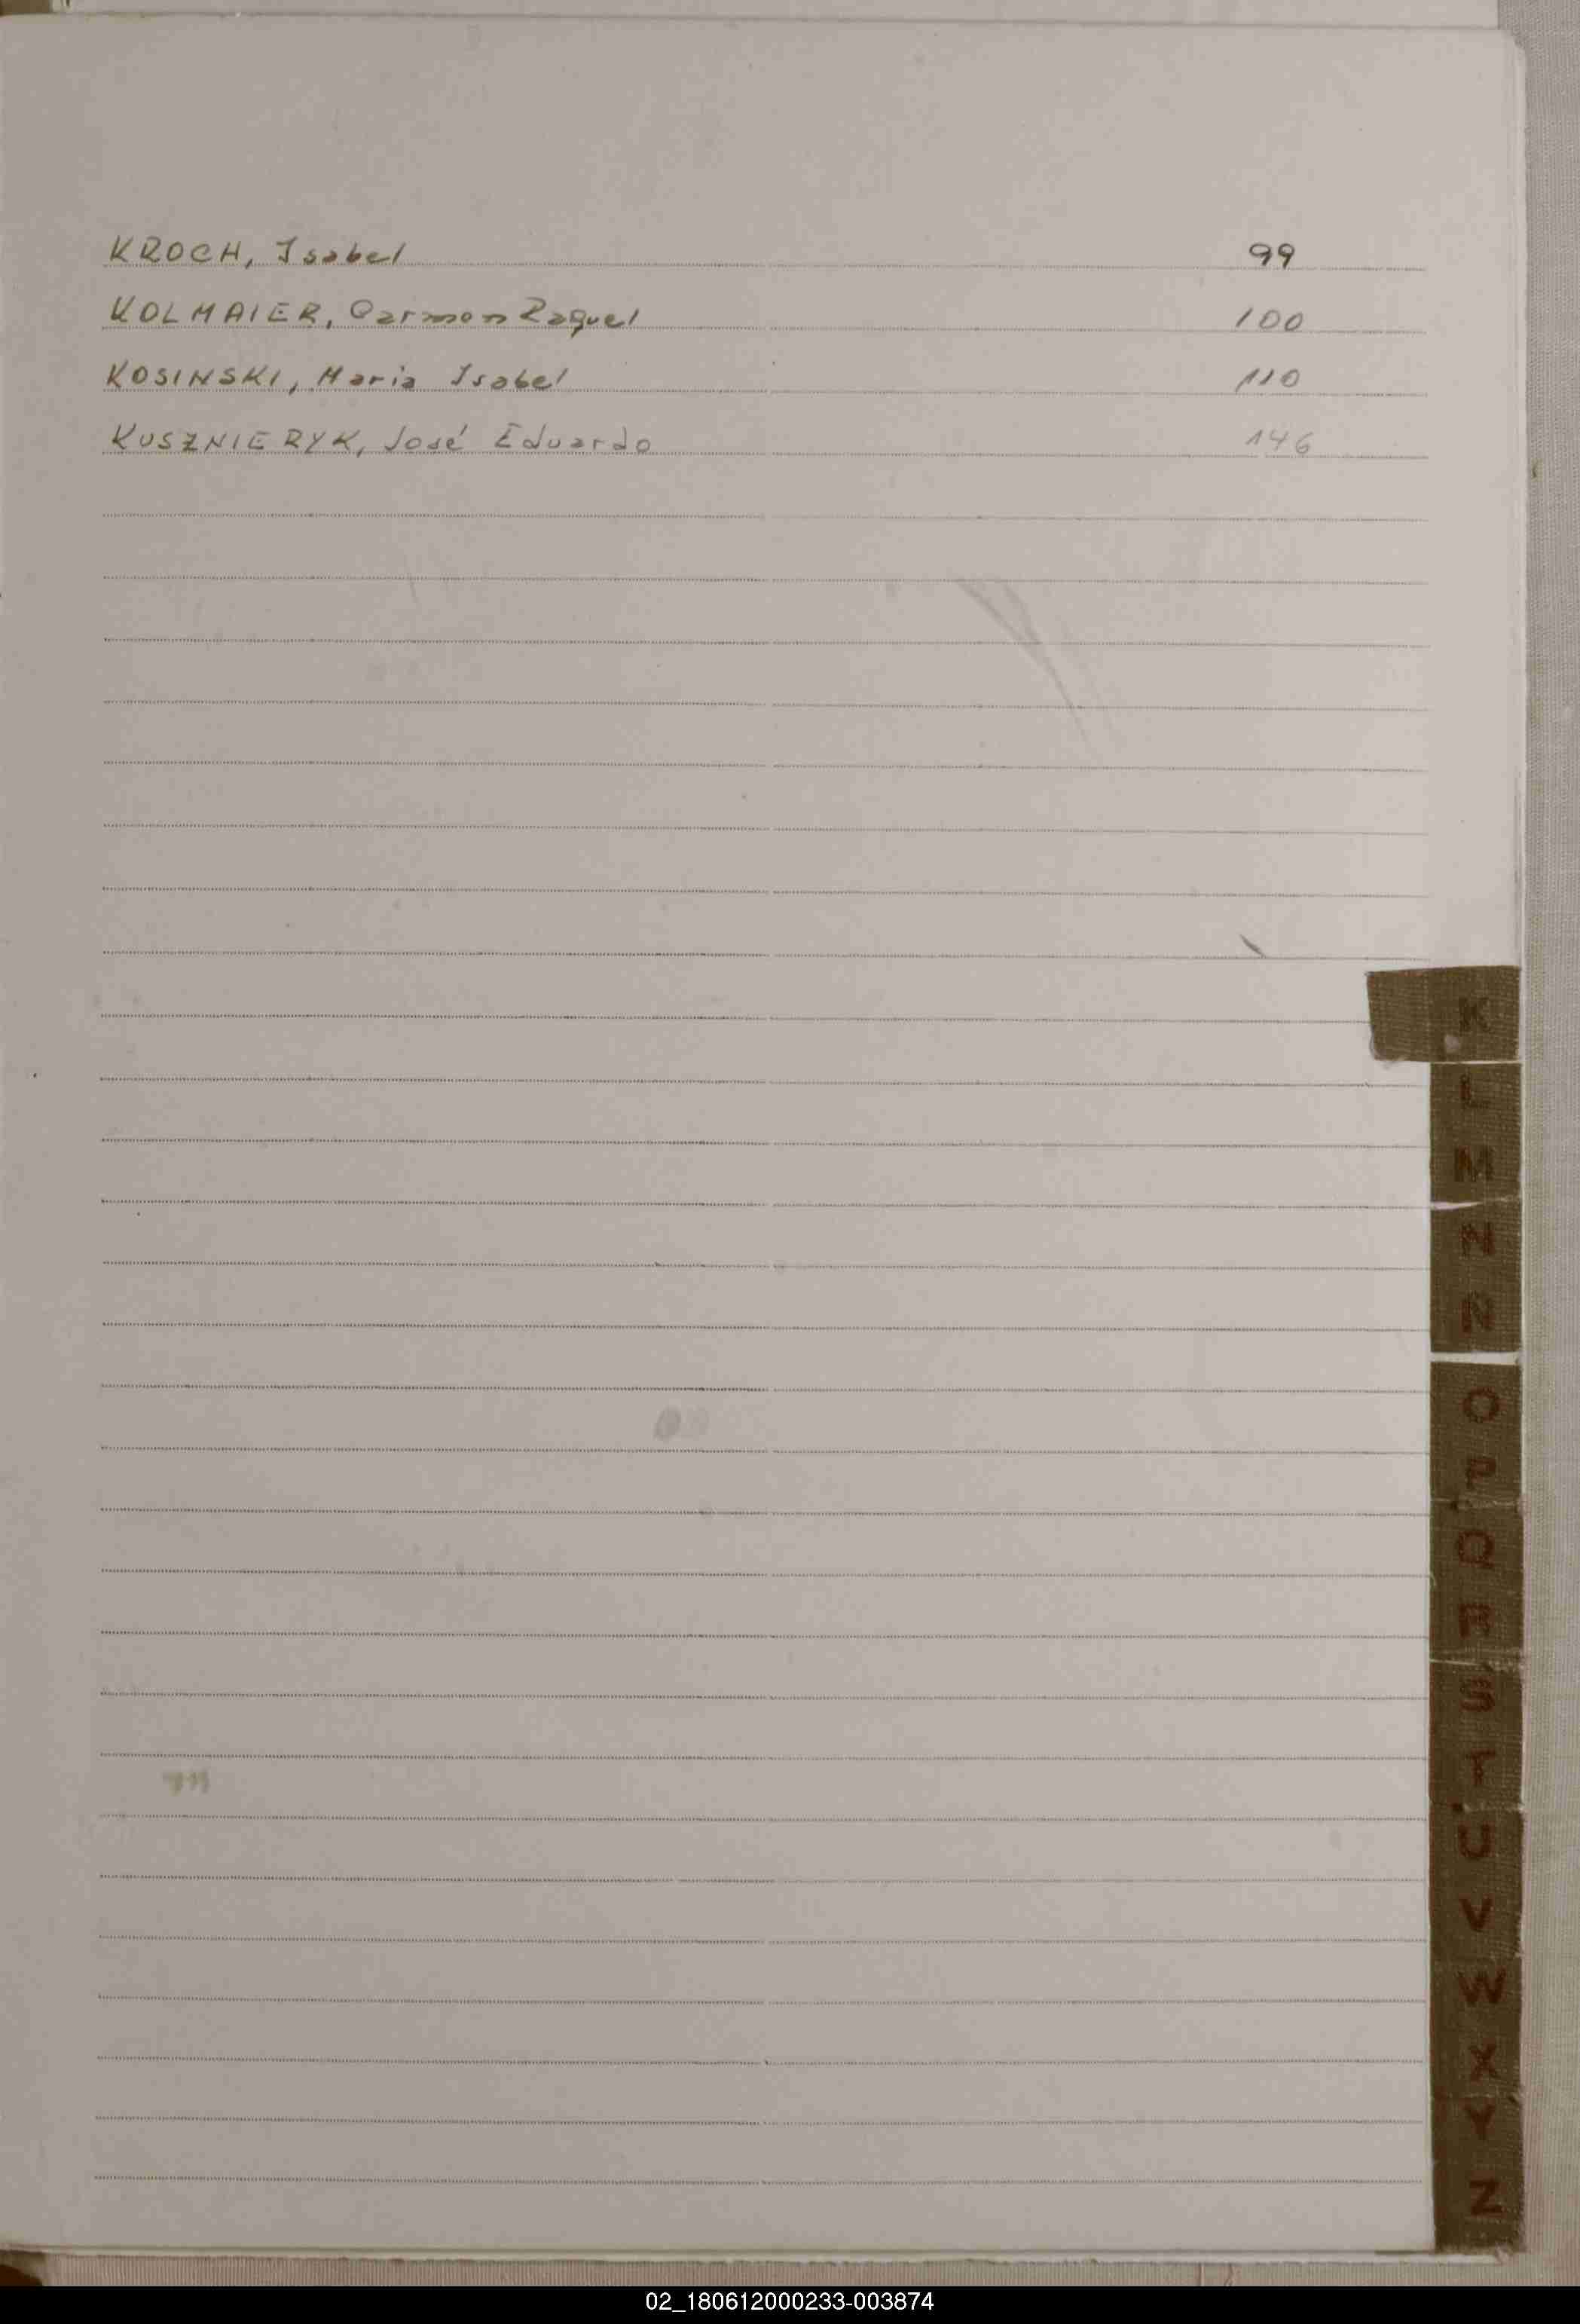 KROCH, Isabel 99
KOLMAIER, Carmen Raquel 100
KOSINSKI, Maria Isabel 110
KUSZNIERYK, José Eduardo 146
K
L
M
N
Ñ
O
P
Q
R
S
T
U
V
W
X
Y
Z
02_180612000233-003874